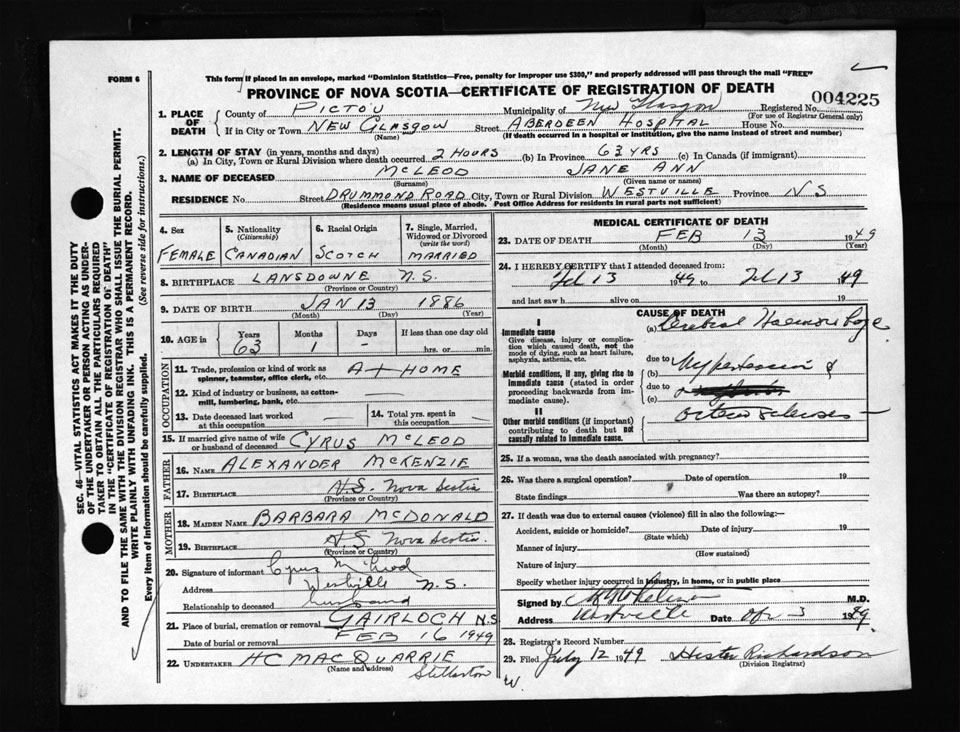 FORM 6
This form if placed in an envelope, marked "Dominion Statistics—Free, penalty for improper use $300," and properly addressed will pass through the mail "FREE"
PROVINCE OF NOVA SCOTIA—CERTIFICATE OF REGISTRATION OF DEATH
004225
1. PLACE OF DEATH
County of PICTOU Municipality of New Glasgow Registered No.
(For use of Registrar General only)
If in City or Town NEW GLASGOW Street ABERDEEN HOSPITAL House No.
(Name) (If death occurred in a hospital or institution, give the name instead of street and number)
2. LENGTH OF STAY (in years, months and days)
(a) In City, Town or Rural Division where death occurred 2 HOURS (b) In Province 63 YRS (c) In Canada (if immigrant)
3. NAME OF DECEASED MCLEOD JANE ANN
(Surname) (Given name or names)
RESIDENCE No. Street DRUMMOND ROAD City, Town or Rural Division WESTVILLE Province N S
(Residence means usual place of abode. Post Office Address for residents in rural parts not sufficient)
4. Sex
FEMALE
5. Nationality
(Citizenship)
CANADIAN
6. Racial Origin
SCOTCH
7. Single, Married, Widowed or Divorced
(write the word)
MARRIED
8. BIRTHPLACE LANSDOWNE N.S.
(Province or Country)
9. DATE OF BIRTH JAN 13 1886
(Month) (Day) (Year)
10. AGE in
Years Months Days If less than one day old
63 1 – hrs. or min.
OCCUPATION
11. Trade, profession or kind of work as
spinner, teamster, office clerk, etc. AT HOME
12. Kind of industry or business, as cotton-
mill, lumbering, bank, etc.
13. Date deceased last worked
at this occupation
14. Total yrs. spent in
this occupation
15. If married give name of wife
or husband of deceased CYRUS MCLEOD
FATHER
16. NAME ALEXANDER MCKENZIE
17. BIRTHPLACE N.S. Nova Scotia
(Province or Country)
MOTHER
18. MAIDEN NAME BARBARA MCDONALD
19. BIRTHPLACE N S Nova Scotia
(Province or Country)
20. Signature of informant Cyrus McLeod
Address Westville N.S.
Relationship to deceased husband
21. Place of burial, cremation or removal GAIRLOCH N.S
Date of burial or removal FEB 16 1949
22. UNDERTAKER HC MACQUARRIE
(Name and address) Stellarton
MEDICAL CERTIFICATE OF DEATH
23. DATE OF DEATH FEB 13 1949
(Month) (Day) (Year)
24. I HEREBY CERTIFY that I attended deceased from:
Feb 13 1949 to Feb 13 1949
and last saw h alive on 19
CAUSE OF DEATH
I
Immediate cause
Give disease, injury or complica-
tion which caused death, not the
mode of dying, such as heart failure,
asphyxia, asthenia, etc.
(a) Cerebral Haemorrhage
due to
Morbid conditions, if any, giving rise to
immediate cause (stated in order
proceeding backwards from im-
mediate cause).
(b) Hypertension &
due to
(c)
II
Other morbid conditions (if important)
contributing to death but not
causally related to immediate cause.
25. If a woman, was the death associated with pregnancy?
26. Was there a surgical operation? Date of operation 19
State findings Was there an autopsy?
27. If death was due to external causes (violence) fill in also the following:—
Accident, suicide or homicide? Date of injury 19
(State which)
Manner of injury
(How sustained)
Nature of injury
Specify whether injury occurred in industry, in home, or in public place
Signed by M.D.
Address Westville Date 3 1949.
28. Registrar's Record Number
29. Filed July 12 1949 Hester Richardson
(Division Registrar)
SEC. 46—VITAL STATISTICS ACT MAKES IT THE DUTY
OF THE UNDERTAKER OR PERSON ACTING AS UNDER-
TAKER TO OBTAIN ALL THE PARTICULARS REQUIRED
IN THE "CERTIFICATE OF REGISTRATION OF DEATH"
AND TO FILE THE SAME WITH THE DIVISION REGISTRAR WHO SHALL ISSUE THE BURIAL PERMIT.
WRITE PLAINLY WITH UNFADING INK. THIS IS A PERMANENT RECORD.
Every item of information should be carefully supplied. (See reverse side for instructions.)